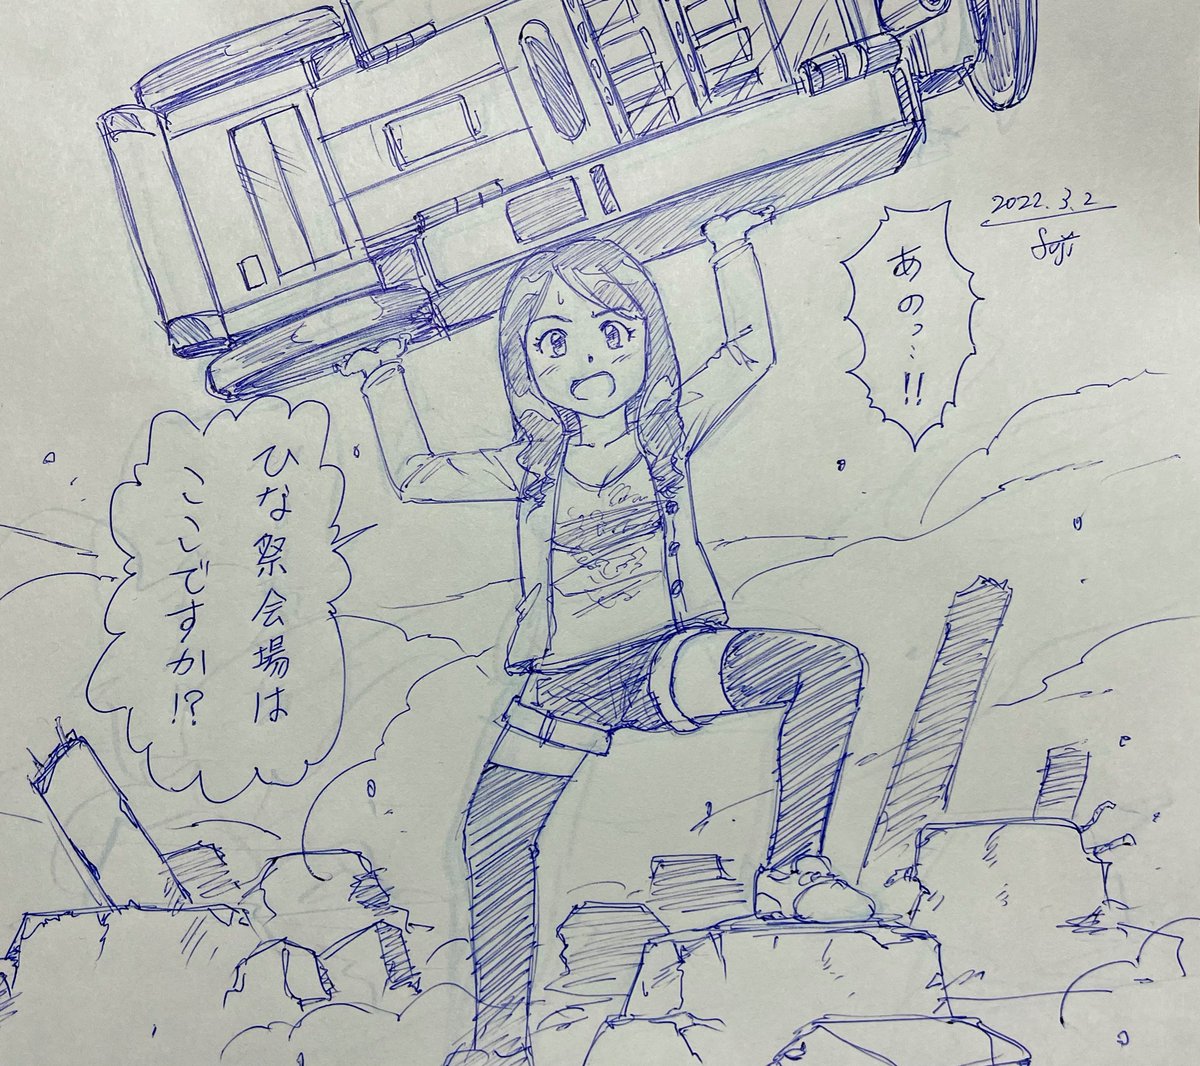 2022.3.2
Suji
あのっ…!!
ひな祭会場は
ここですか!?